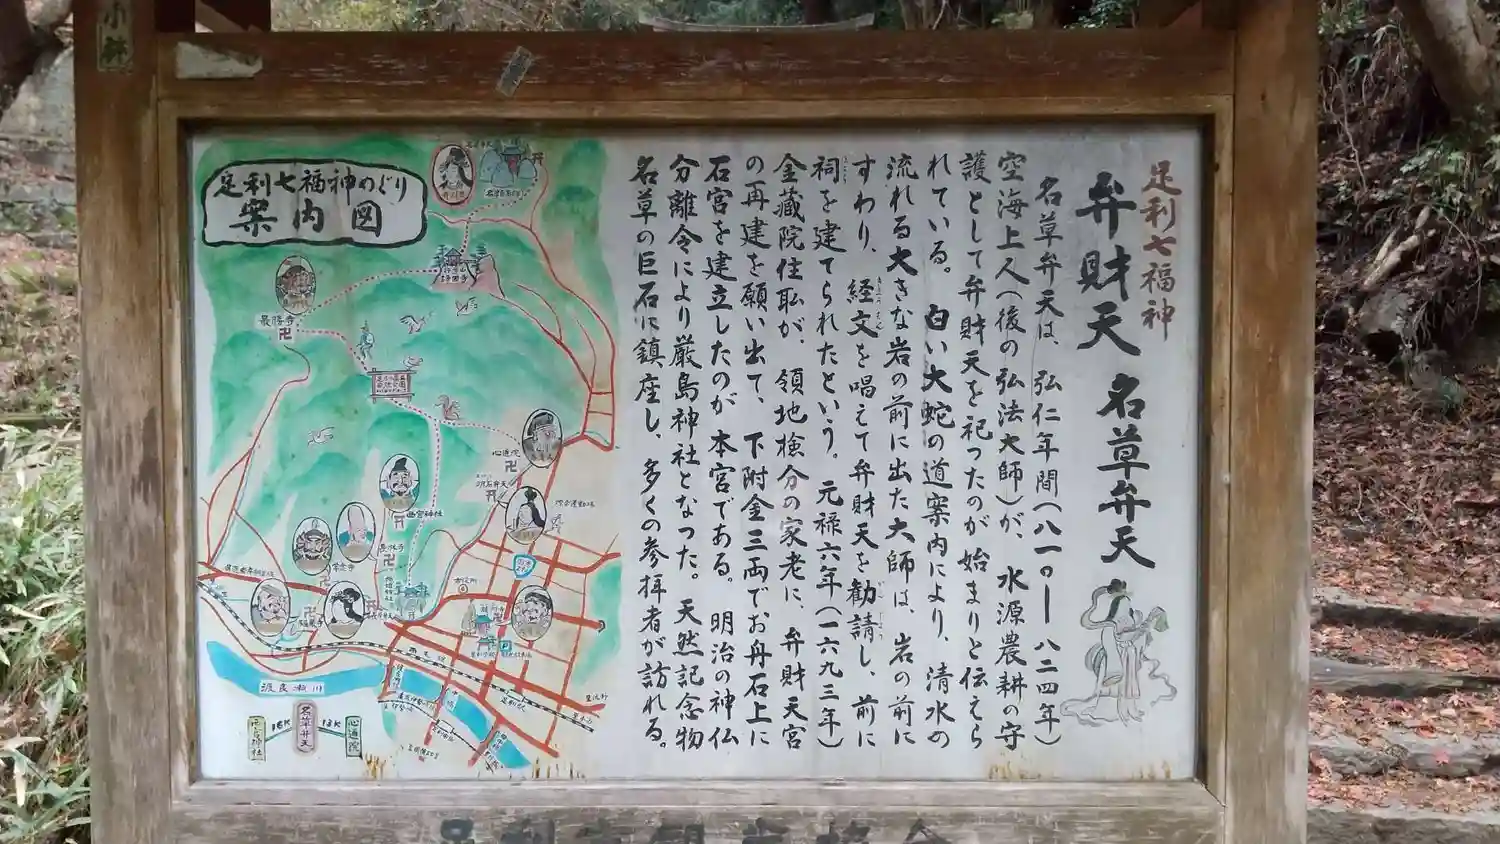 足利七福神
弁財天 名草弁天
名草弁天は、弘仁年間(八一〇ー八二四年)
空海上人(後の弘法大師)が、水源農耕の守
護として弁財天を祀ったのが始まりと伝えら
れている。白い大蛇の道案内により、清水の
流れる大きな岩の前に出た大師は、岩の前に
すわり、経文を唱えて弁財天を勧請し、前に
祠を建てられたという。元禄六年(一六九三年)
金蔵院住職が、領地検分の家老に、弁財天宮
の再建を願い出て、下附金三両でお舟石上に
石宮を建立したのが本宮である。明治の神仏
分離令により厳島神社となった。天然記念物
名草の巨石に鎮座し、多くの参拝者が訪れる。
足利七福神めぐり
案内図
最勝寺
心通院
明石弁天
西宮神社
長林寺
常念寺
福厳寺
市役所
両毛線
渡良瀬川
足利駅
名草弁天
心通院
12K